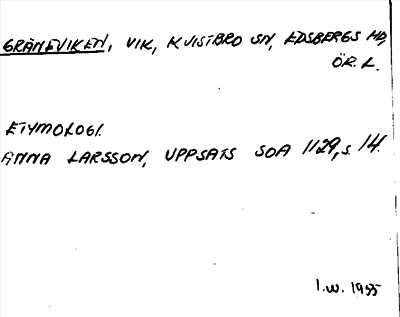 GRÄNEVIKEN, VIK, KVISTBRO SN, EDSBERGS HD,
ÖR. L.
ETYMOLOGI.
ANNA LARSSON, UPPSATS SOA 1129, s. 14.
I.W. 1955